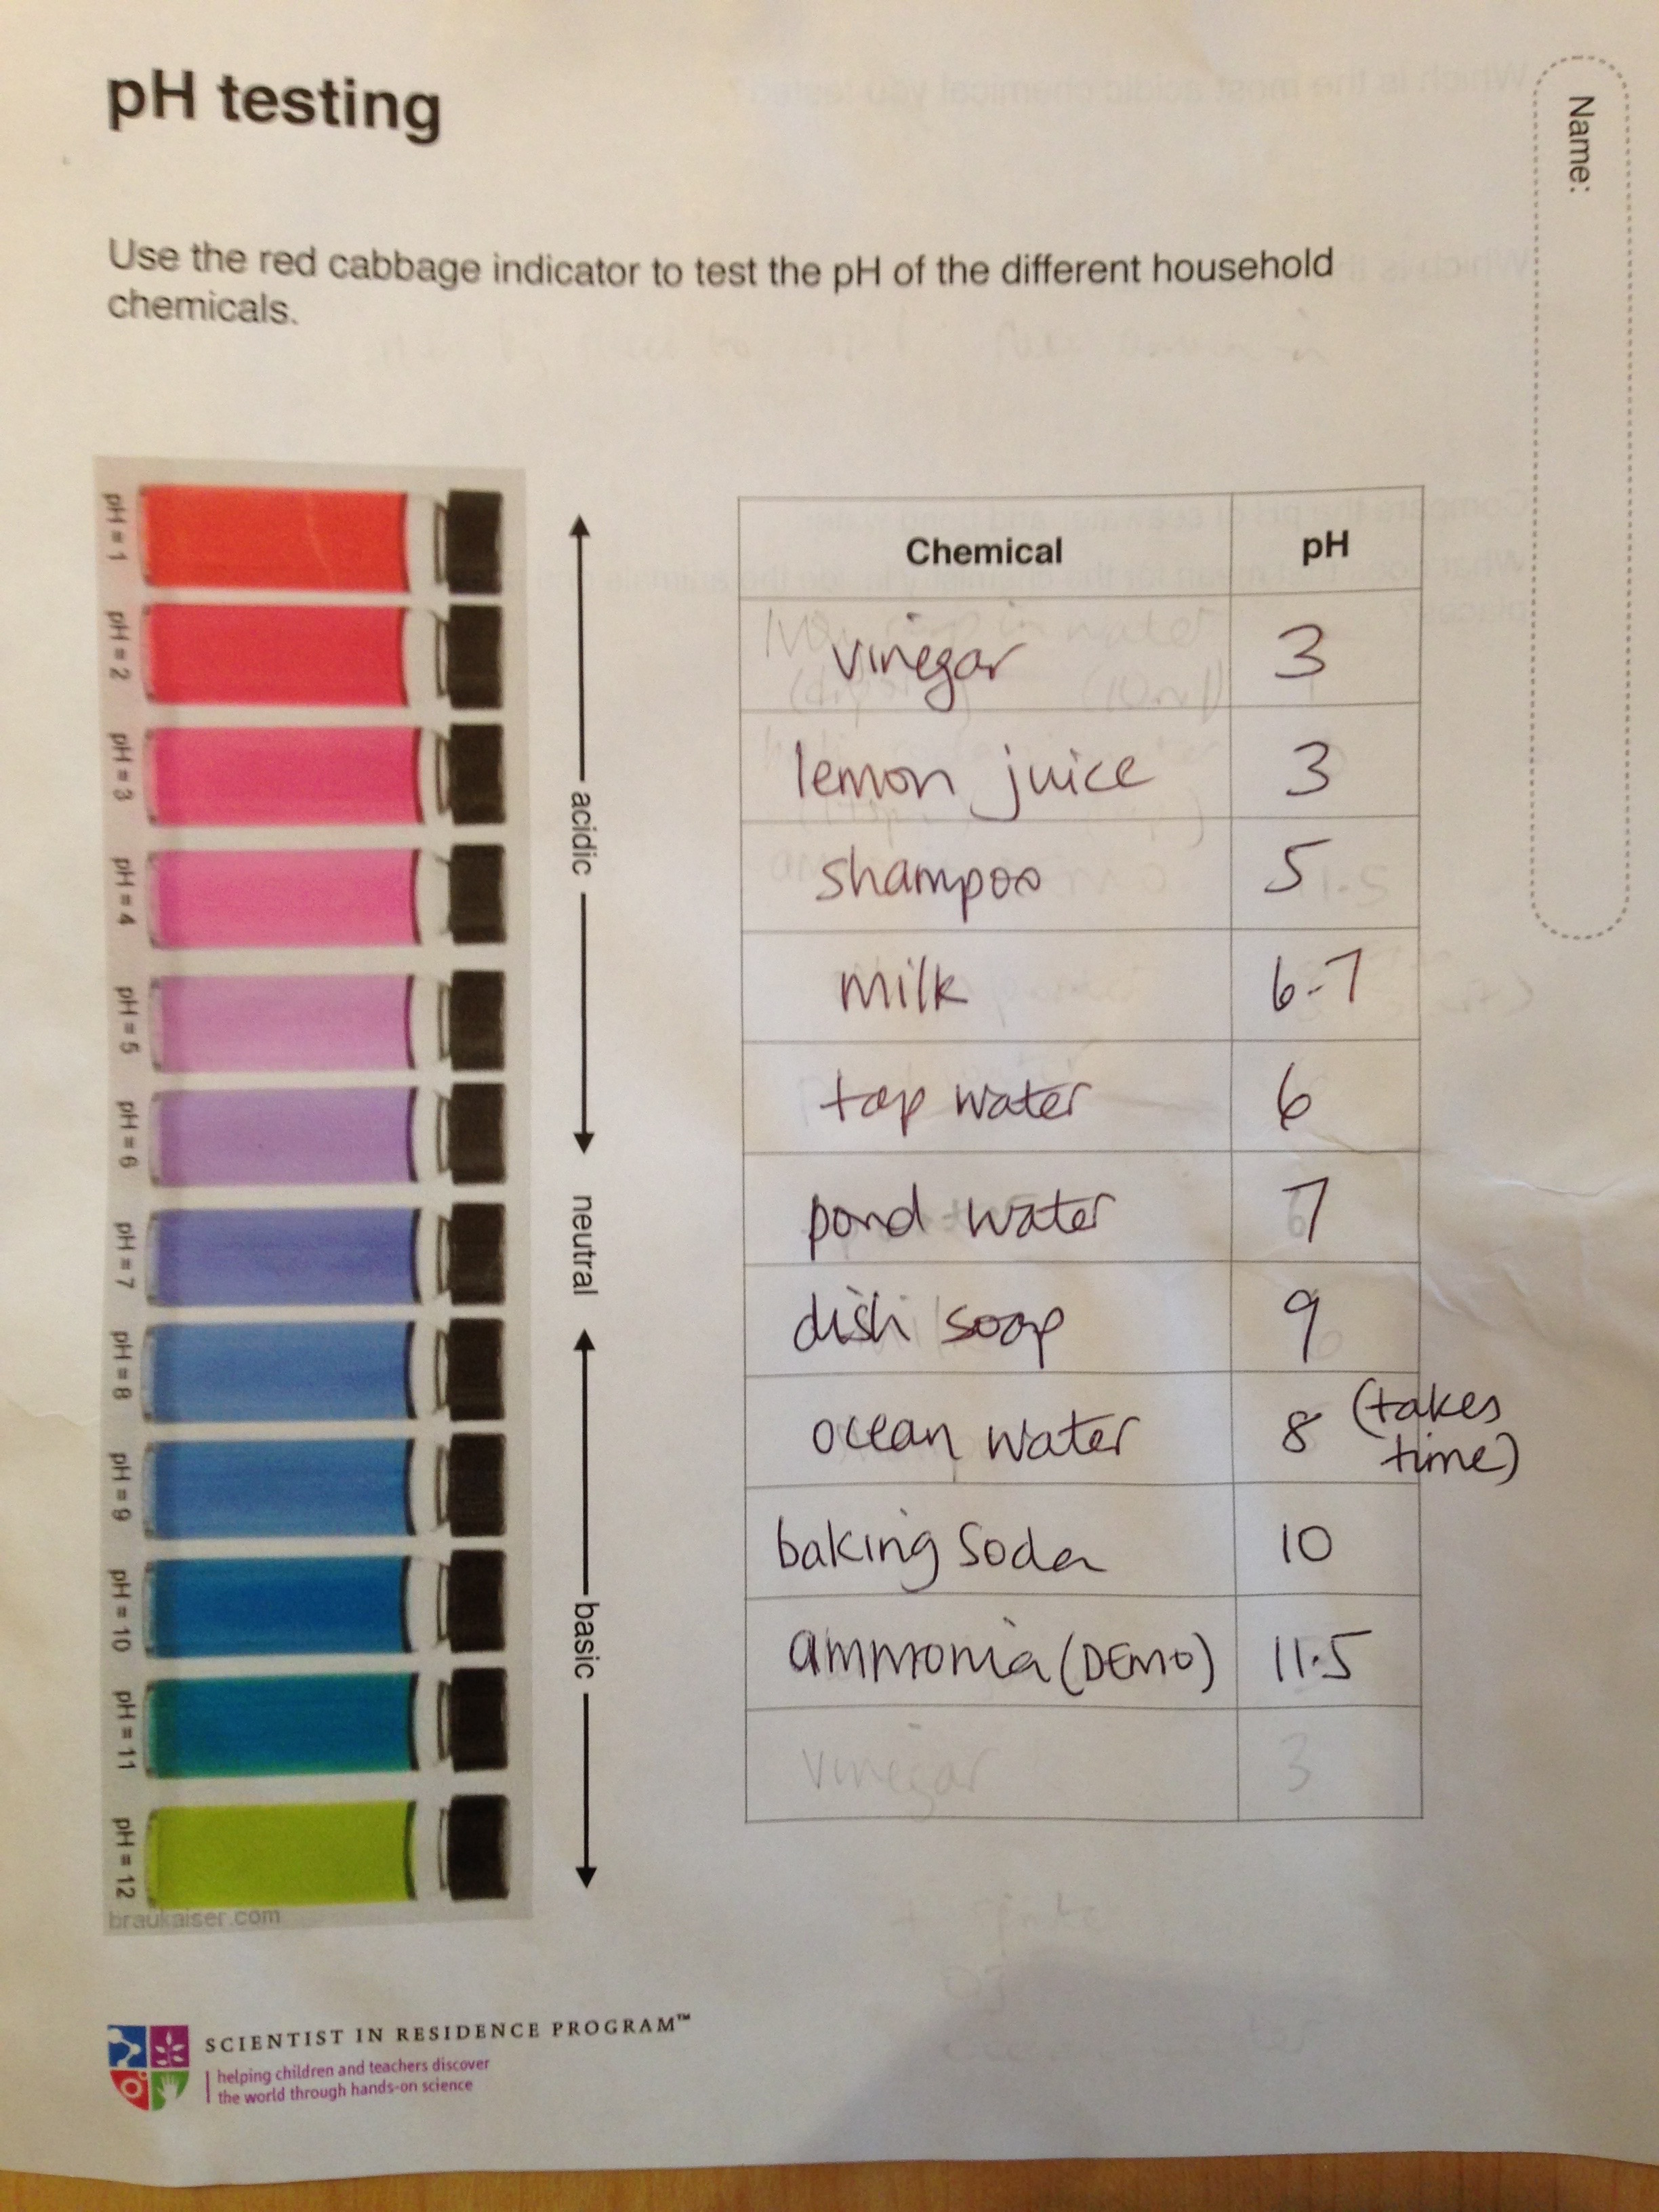 pH testing
Name:
Use the red cabbage indicator to test the pH of the different household
chemicals.
pH = 1
pH = 2
pH = 3
pH = 4
pH = 5
pH = 6
pH = 7
pH = 8
pH = 9
pH = 10
pH = 11
pH = 12
braukaiser.com
acidic
neutral
basic
Chemical pH
vinegar 3
lemon juice 3
shampoo 5
milk 6-7
tap water 6
pond water 7
dish soap 9
ocean water 8 (takes
time)
baking soda 10
ammonia (DEMO) 11.5
vinegar 3
SCIENTIST IN RESIDENCE PROGRAM™
helping children and teachers discover
the world through hands-on science